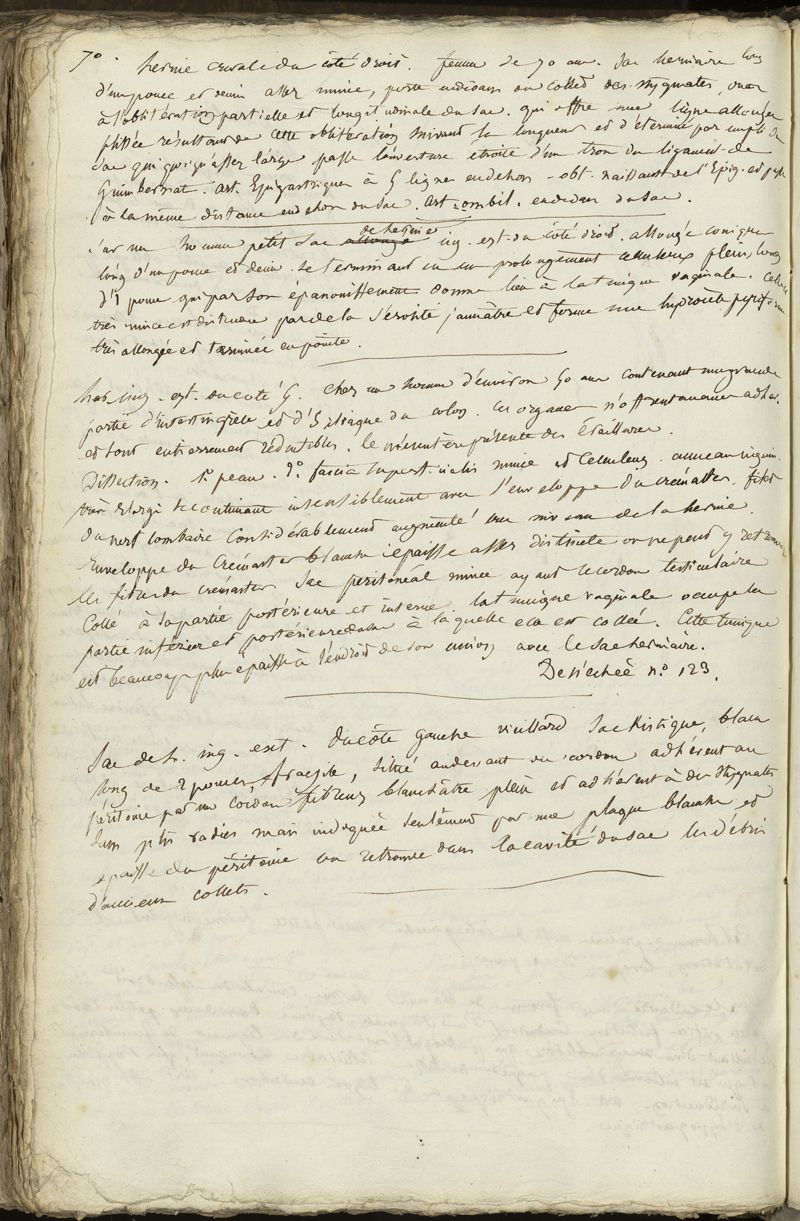 7° . hernie crurale du côté droit . femme de 70 ans . Sac herniaire long
d'un pouce et demi assez mince, porte au dedans du collet des stygmates, due
à l'oblitération partielle et longitudinale du sac . qui offre une ligne allongée
plissée résultant de cette oblitération suivant la longueur et déterminé par
sac qui quoiqu'assez large passe l'ouverture étroite d'un trou du ligament de
Guimbernat . art. Epigastrique à 5 lignes en dehors - obt. naissant de l'Epig. et passe
à la même distance en dehors du sac . art. ombil . en dedans du sac .
Sur un homme petit sac de hernie ing . ext. du côté droit . allongée conique
long d'un pouce et demi . se terminant en un prolongement celluleux plein, long
d'1 pouce qui par son épanouissement donne lieu à la tunique vaginale . Celle ci
très mince est distendue par de la sérosité jaunâtre et forme une hydrocèle pyriforme
très allongée et terminée en pointe .
hern. ing . ext . du coté G . Chez un homme d'environ 50 ans contenant une grande
partie d'intestin grêle et d'S iliaque du colon . Ces organes n'offrent aucune adhér.
et sont entièrement réductibles . le mésentère présente des éraillures .
Dissection . 1° peau . 2° fascia superficialis mince et celluleux . anneau inguin.
très élargi se continuant insensiblement avec l'enveloppe du crémaster . filet
du nerf lombaire considérablement augmenté au niveau de la hernie .
Enveloppe du Crémaster blanche épaisse assez distincte on ne peut y retrouver
les fibres du crémaster Sac péritonéal mince ayant le cordon testiculaire
Collé à sa partie postérieure et interne . la tunique vaginale occupe la
partie inférieure et postérieure du sac à laquelle elle est collée . Cette tunique
est beaucoup plus épaisse à l'endroit de son union avec le sac herniaire .
Desséchée n° 123 .
Sac de h . ing . ext . du côté gauche vieillard Sac Kistique, blanc
long de 2 pouces, fragile, situé au devant du cordon adhérent au
péritoine par un cordon fibreux blanchâtre plein et adhérent à des stygmates
sans plis radiés mais indiquée seulement par une plaque blanche et
épaisse du péritoine on retrouve dans la cavité du sac les débris
d'anciens collets .